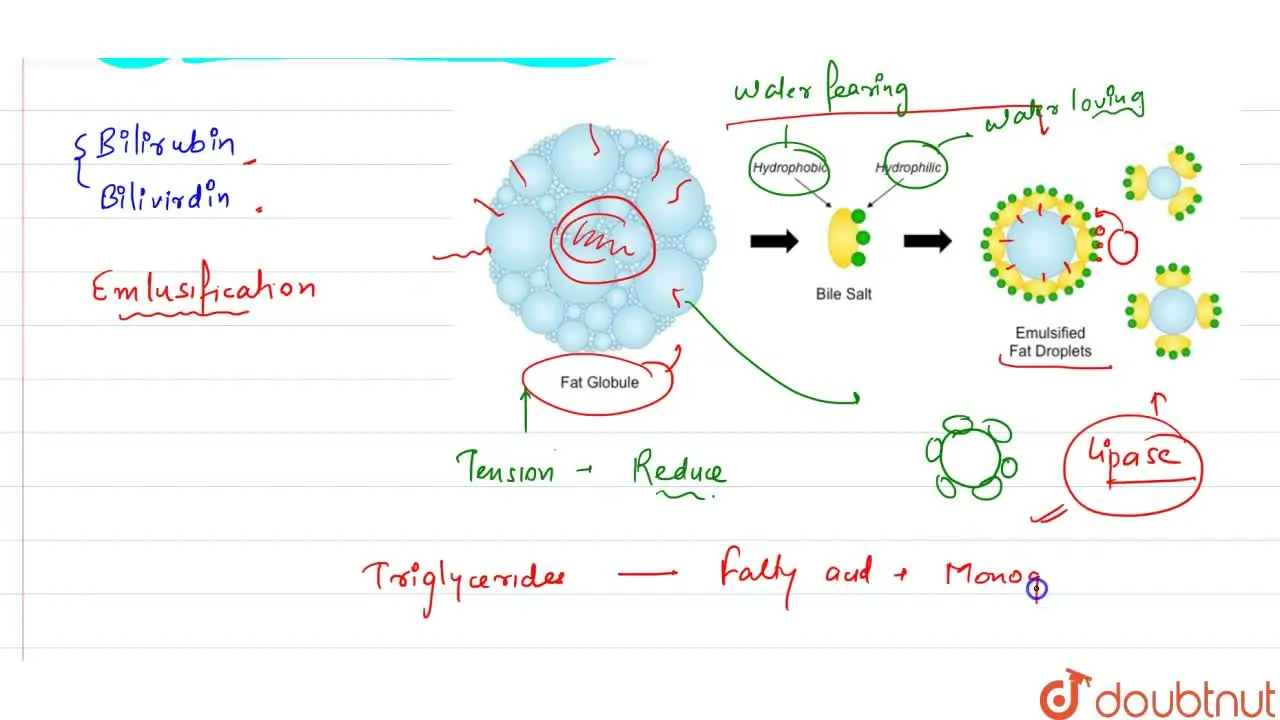 water fearing
water loving
Bilirubin
Bilivirdin
Hydrophobic
Hydrophilic
Emlusification
Bile Salt
Emulsified
Fat Droplets
Fat Globule
Tension → Reduce
lipase
Triglycerides — Fatty acid + Monog
doubtnut